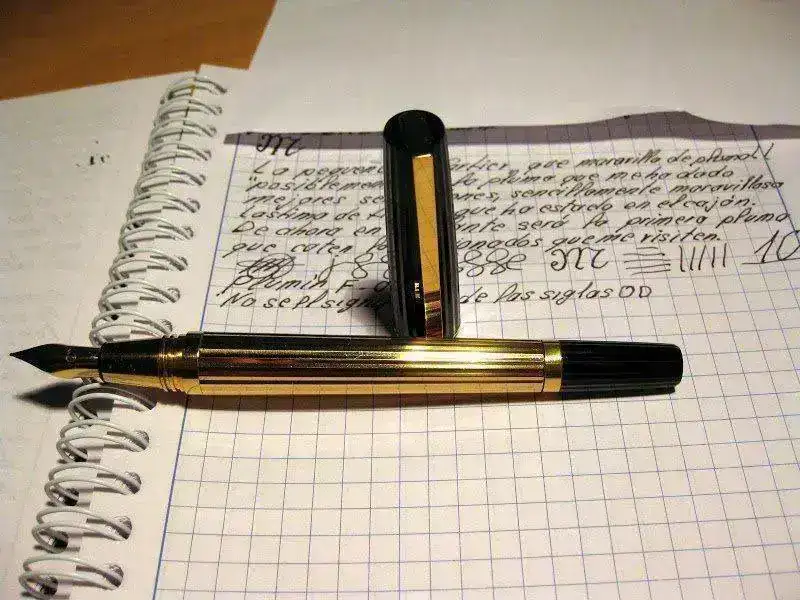 JLC
La pequeñ rtier que maravilla de pluma!!
posibleme la pluma que me ha dado
mejores se ones, sencillamente maravillosa
Lastima de que ha estado en el cajón.
De ahora en ante será la primera pluma
que caten onados que me visiten.
JLC 10
plumin F-
No se el signi de las siglas OD